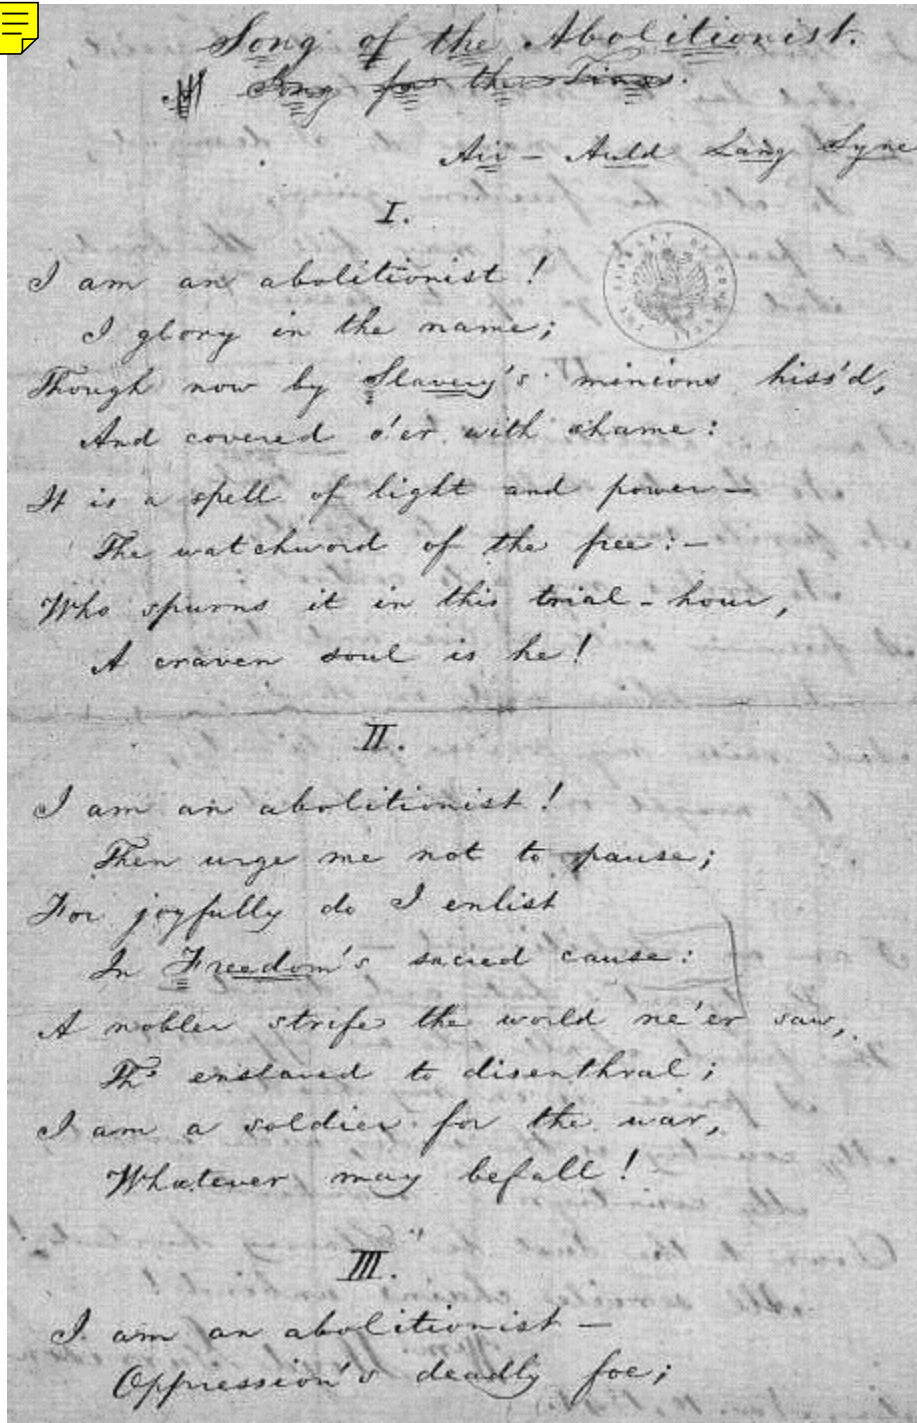 Song of the Abolitionist.
Song for the Times.
Air - Auld Lang Syne
I.
I am an abolitionist!
I glory in the name;
Though now by Slavery's minions hiss'd,
And covered o'er with shame:
It is a spell of light and power—
The watchword of the free:—
Who spurns it in this trial-hour,
A craven soul is he!
II.
I am an abolitionist!
Then urge me not to pause;
For joyfully do I enlist
In Freedom's sacred cause:
A nobler strife the world ne'er saw,
Th' enslaved to disenthral;
I am a soldier for the war,
Whatever may befall!
III.
I am an abolitionist—
Oppression's deadly foe;